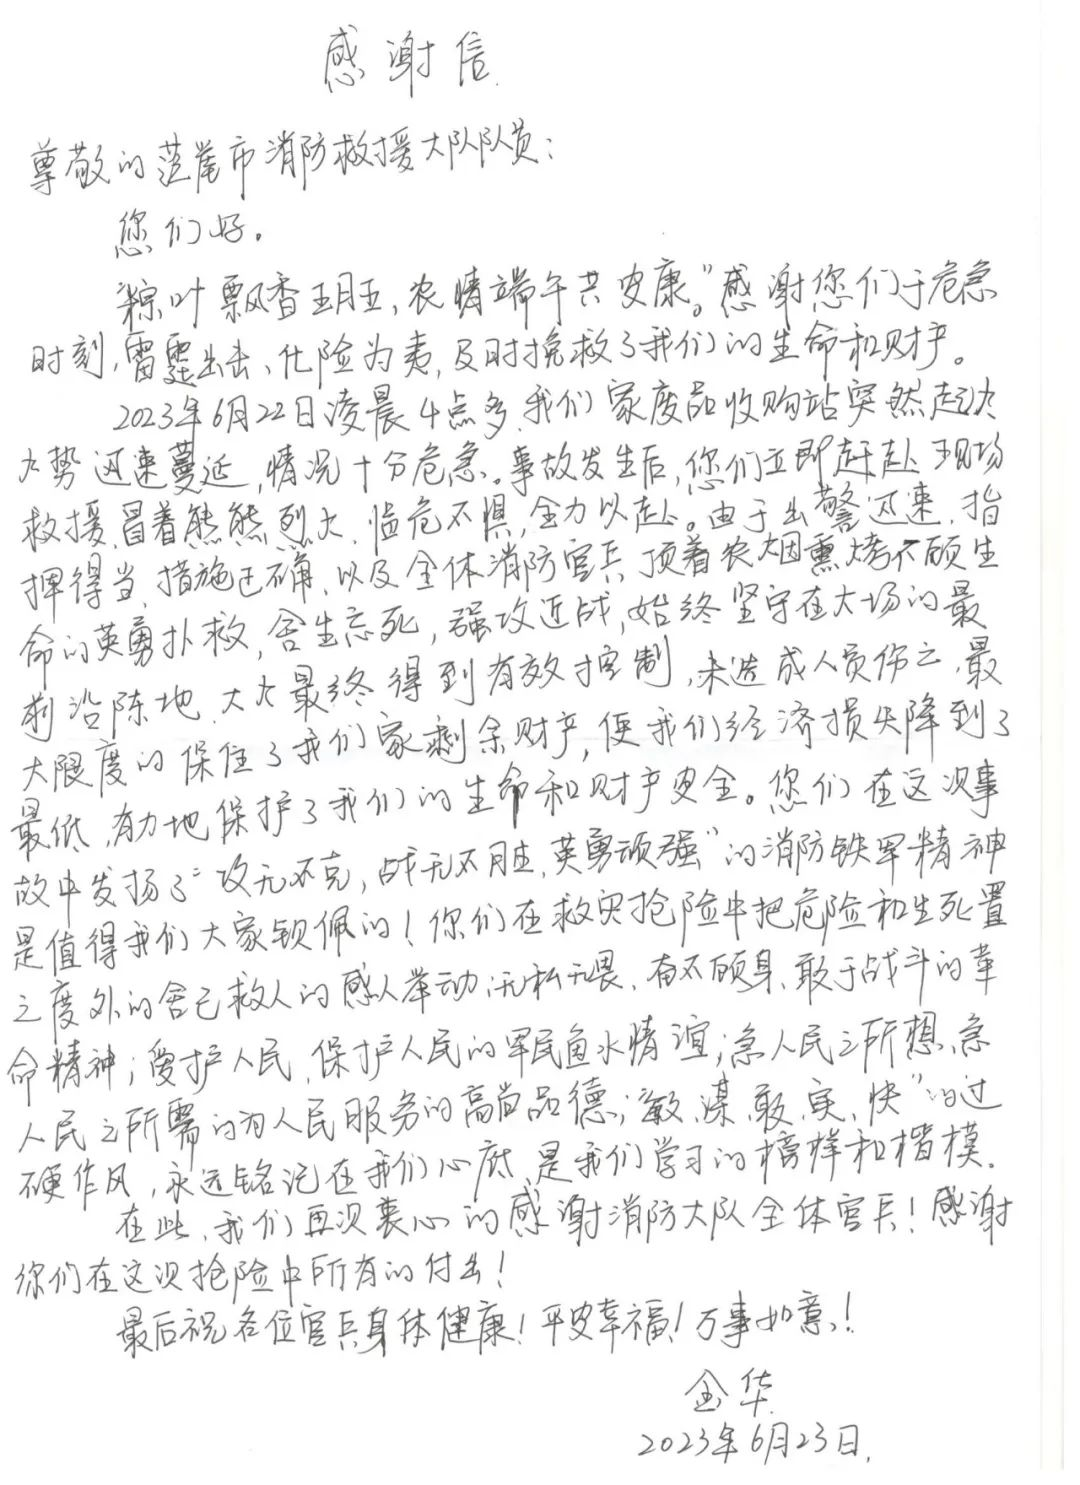 感谢信
尊敬的范崔市消防救援大队队员：
您们好。
粽叶飘香五月五，农情端午共安康。”感谢您们于危急
时刻，雷霆出击、化险为夷，及时挽救了我们的生命和财产。
2023年6月22日凌晨4点多，我们家废品收购站突然起火
火势迅速蔓延，情况十分危急。事故发生后，您们立即赶赴现场
救援，冒着熊熊烈火，临危不惧，全力以赴。由于出警迅速，指
挥得当，措施正确，以及全体消防官兵顶着农烟熏烤不顾生
命的英勇扑救，舍生忘死，强攻近战，始终坚守在火场的最
前沿阵地，大火最终得到有效控制，未造成人员伤亡，最
大限度的保住了我们家剩余财产，使我们经济损失降到了
最低，有力地保护了我们的生命和财产安全。您们在这次事
故中发扬了“攻无不克，战无不胜，英勇顽强”的消防铁军精神
是值得我们大家钦佩的！你们在救灾抢险中把危险和生死置
之度外的舍己救人的感人举动；无私无畏、奋不顾身、敢于战斗的革
命精神；爱护人民，保护人民的军民鱼水情谊；急人民之所想，急
人民之所需的为人民服务的高尚品德；敏、谋、敢、实、快”的过
硬作风，永远铭记在我们心底，是我们学习的榜样和楷模。
在此，我们再次衷心的感谢消防大队全体官兵！感谢
你们在这次抢险中所有的付出！
最后祝各位官兵身体健康！平安幸福！万事如意！
金华
2023年6月23日.